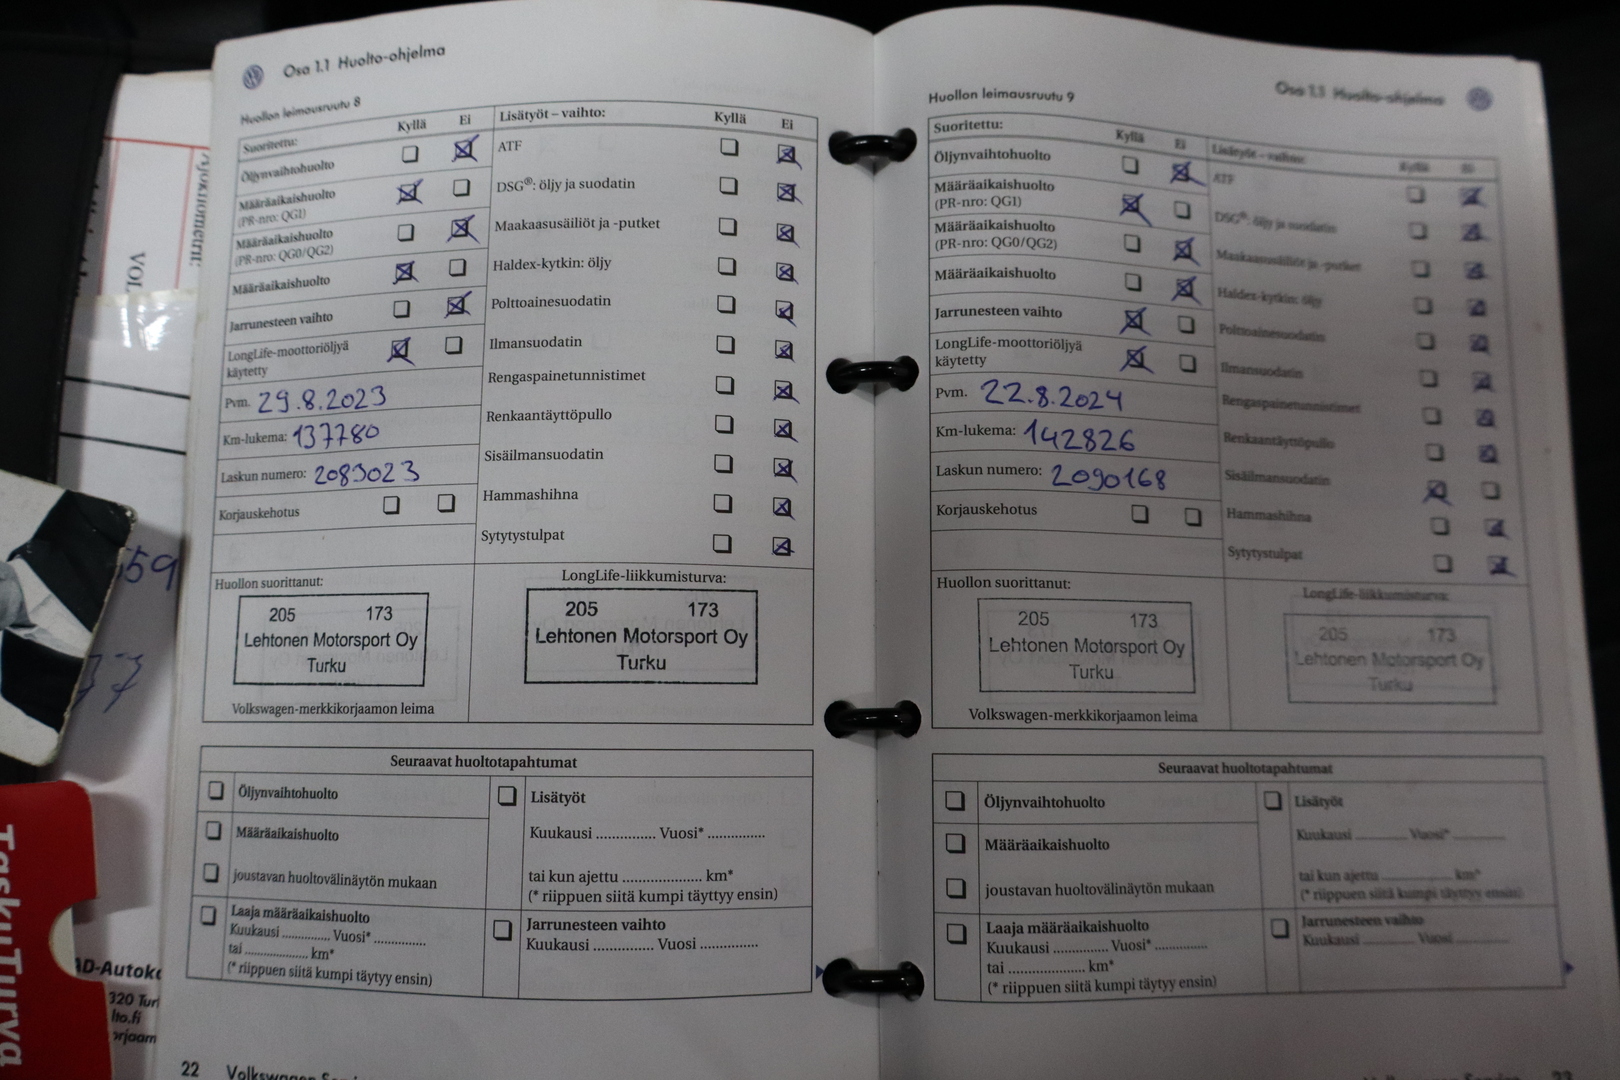 Osa 1.1 Huolto-ohjelma
Huollon leimausruutu 8
Suoritettu: Kyllä Ei
Öljynvaihtohuolto
Määräaikaishuolto
(PR-nro: QG1)
Määräaikaishuolto
(PR-nro: QG0/QG2)
Määräaikaishuolto
Jarrunesteen vaihto
LongLife-moottoriöljyä
käytetty
Pvm. 29.8.2023
Km-lukema: 137780
Laskun numero: 2083023
Korjauskehotus
Lisätyöt – vaihto: Kyllä Ei
ATF
DSG®: öljy ja suodatin
Maakaasusäiliöt ja -putket
Haldex-kytkin: öljy
Polttoainesuodatin
Ilmansuodatin
Rengaspainetunnistimet
Renkaantäyttöpullo
Sisäilmansuodatin
Hammashihna
Sytytystulpat
Huollon suorittanut:
205 173
Lehtonen Motorsport Oy
Turku
Volkswagen-merkkikorjaamon leima
LongLife-liikkumisturva:
205 173
Lehtonen Motorsport Oy
Turku
Seuraavat huoltotapahtumat
Öljynvaihtohuolto
Määräaikaishuolto
joustavan huoltovälinäytön mukaan
Laaja määräaikaishuolto
Kuukausi .............. Vuosi* ...............
tai .................... km*
(* riippuen siitä kumpi täytyy ensin)
Lisätyöt
Kuukausi .............. Vuosi* ..............
tai kun ajettu .................... km*
(* riippuen siitä kumpi täyttyy ensin)
Jarrunesteen vaihto
Kuukausi .............. Vuosi ..............
22
Osa 1.1 Huolto-ohjelma
Huollon leimausruutu 9
Suoritettu: Kyllä Ei
Öljynvaihtohuolto
Määräaikaishuolto
(PR-nro: QG1)
Määräaikaishuolto
(PR-nro: QG0/QG2)
Määräaikaishuolto
Jarrunesteen vaihto
LongLife-moottoriöljyä
käytetty
Pvm. 22.8.2024
Km-lukema: 142826
Laskun numero: 2090168
Korjauskehotus
Lisätyöt – vaihto: Kyllä Ei
ATF
DSG®: öljy ja suodatin
Maakaasusäiliöt ja -putket
Haldex-kytkin: öljy
Polttoainesuodatin
Ilmansuodatin
Rengaspainetunnistimet
Renkaantäyttöpullo
Sisäilmansuodatin
Hammashihna
Sytytystulpat
Huollon suorittanut:
205 173
Lehtonen Motorsport Oy
Turku
Volkswagen-merkkikorjaamon leima
LongLife-liikkumisturva:
205 173
Lehtonen Motorsport Oy
Turku
Seuraavat huoltotapahtumat
Öljynvaihtohuolto
Määräaikaishuolto
joustavan huoltovälinäytön mukaan
Laaja määräaikaishuolto
Kuukausi .............. Vuosi* ..............
tai .................... km*
(* riippuen siitä kumpi täytyy ensin)
Lisätyöt
Kuukausi .............. Vuosi* ..............
tai kun ajettu .................... km*
(* riippuen siitä kumpi täyttyy ensin)
Jarrunesteen vaihto
Kuukausi .............. Vuosi ..............
Ajokilometrit:
59
77
TaskuTurva
AD-Autoko
lto.fi